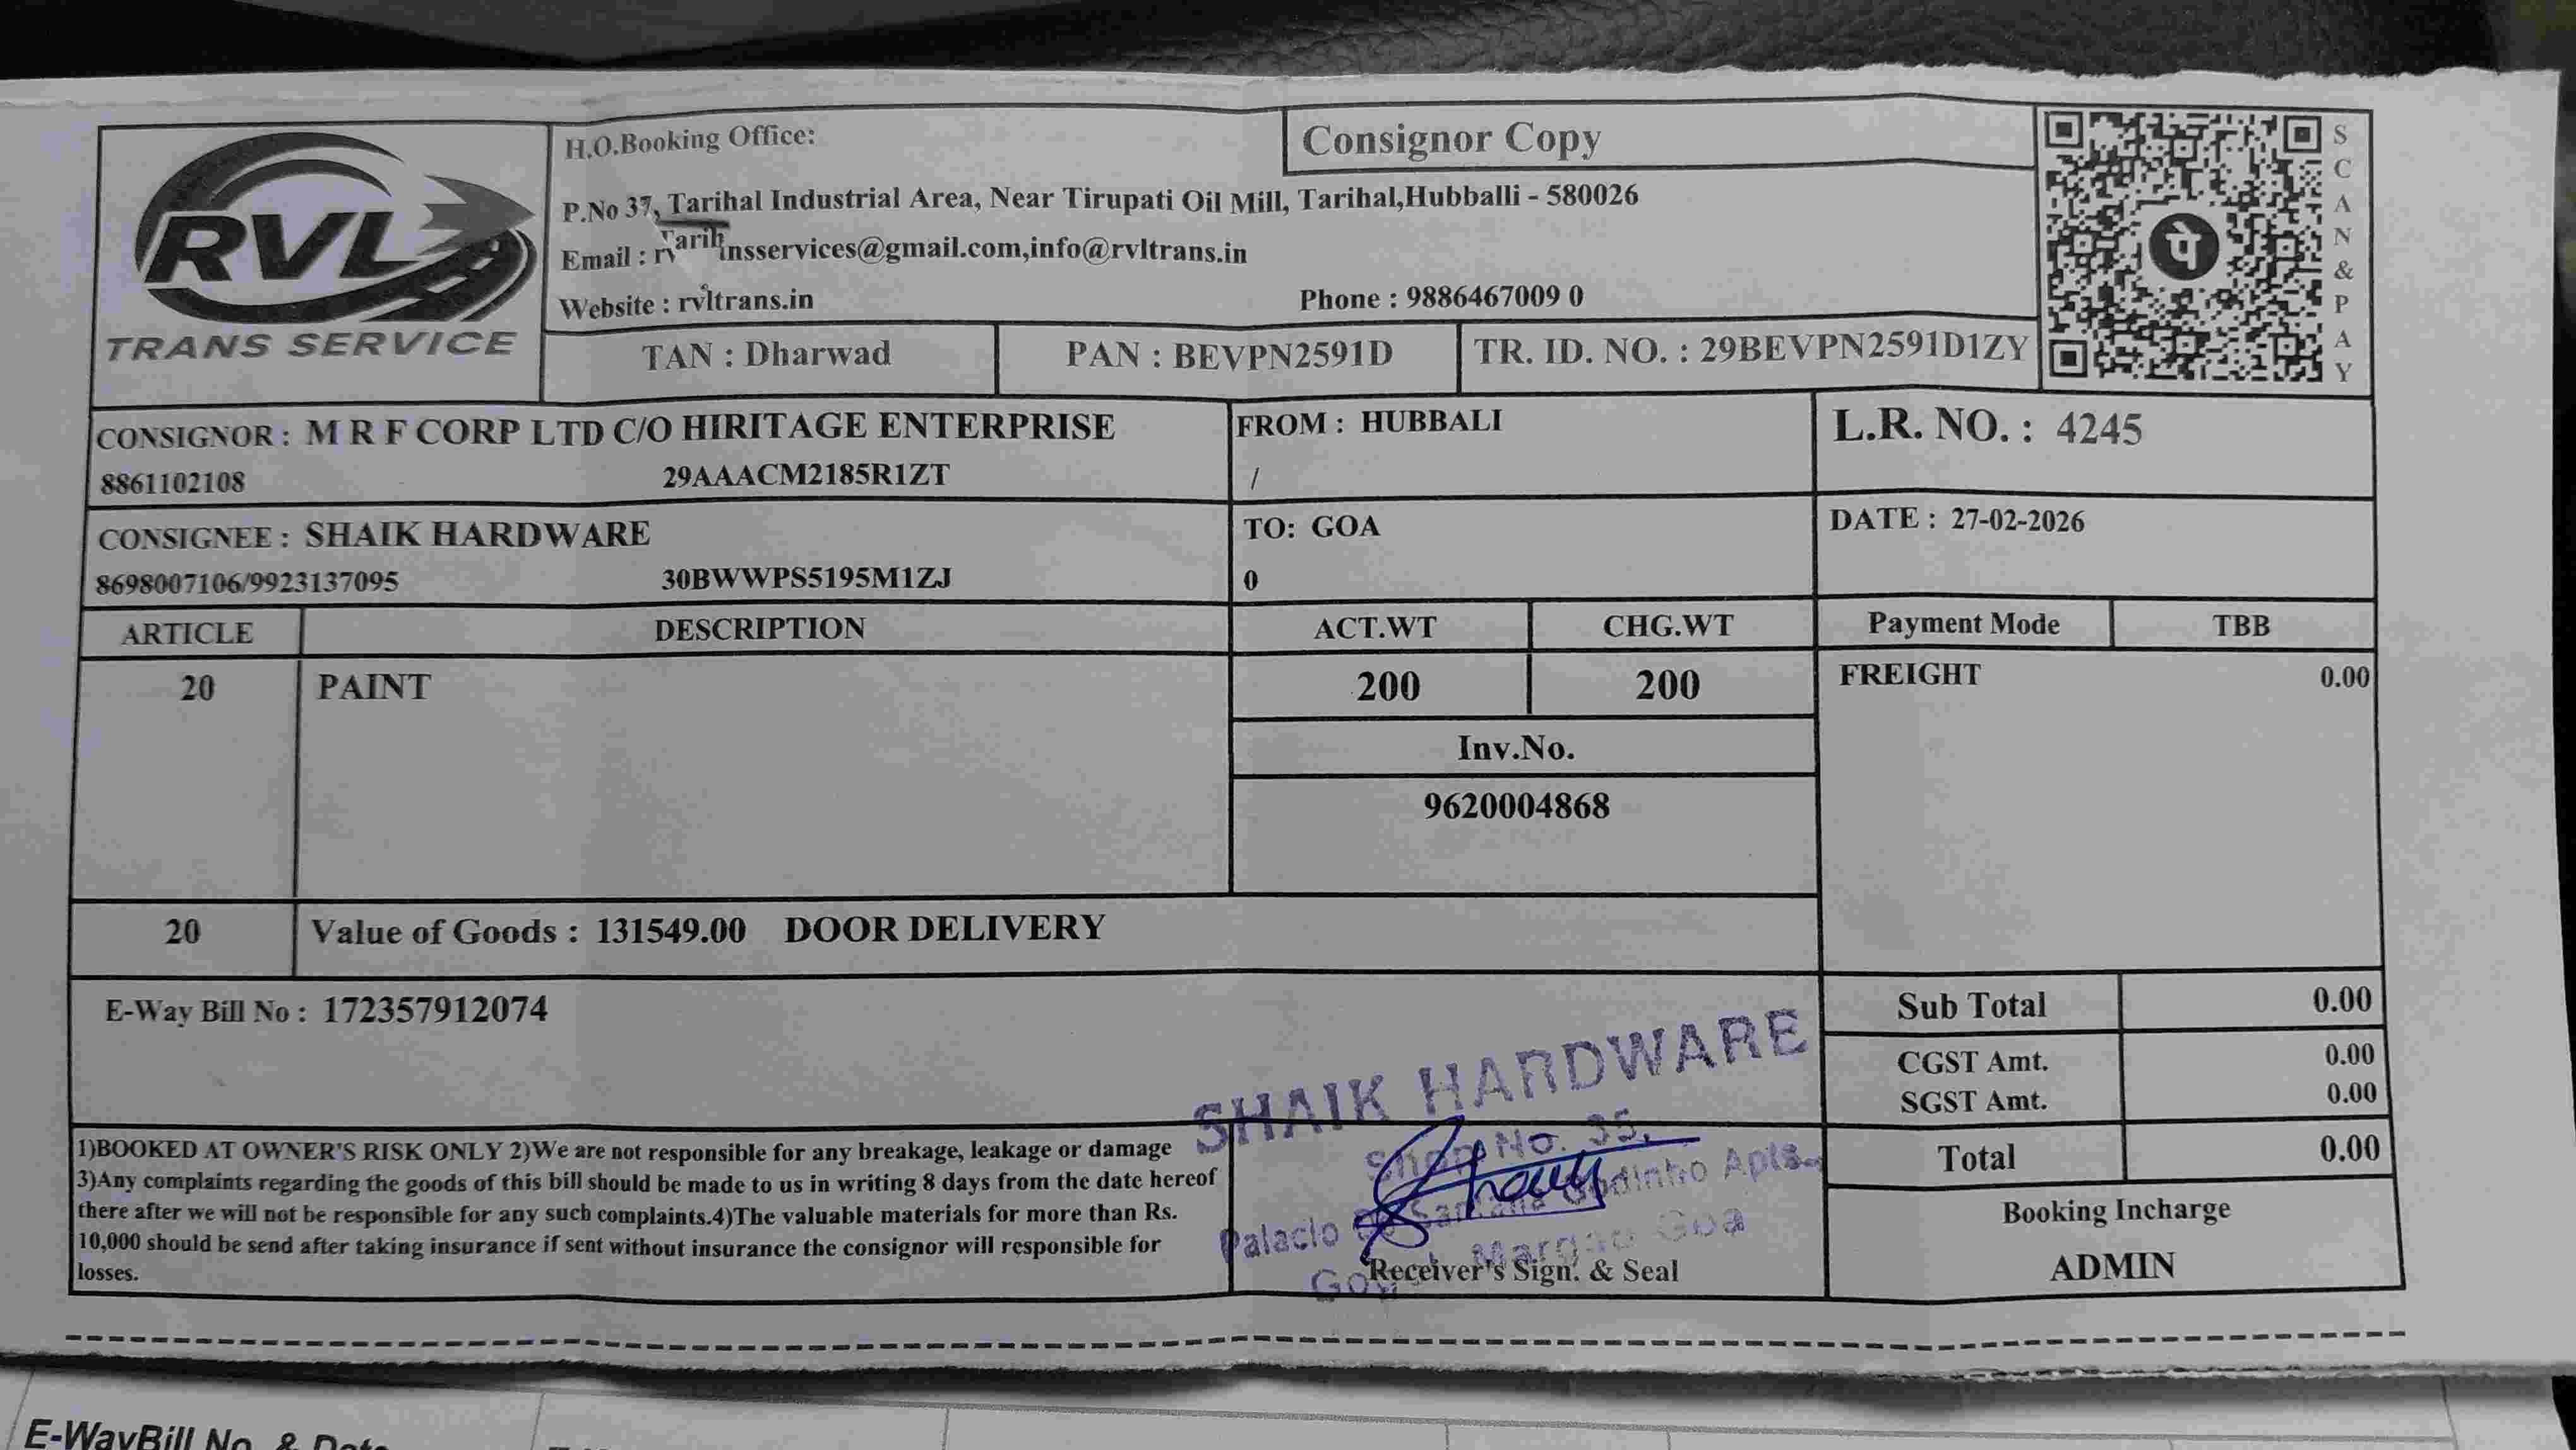 RVL
TRANS SERVICE
H.O.Booking Office:
Consignor Copy
P.No 37, Tarihal Industrial Area, Near Tirupati Oil Mill, Tarihal,Hubballi - 580026
Email : insservices@gmail.com,info@rvltrans.in
Website : rvltrans.in Phone : 9886467009 0
TAN : Dharwad PAN : BEVPN2591D TR. ID. NO. : 29BEVPN2591D1ZY
पे
SCAN&PAY
CONSIGNOR : M R F CORP LTD C/O HIRITAGE ENTERPRISE
8861102108 29AAACM2185R1ZT
FROM : HUBBALI
/
L.R. NO. : 4245
CONSIGNEE : SHAIK HARDWARE
8698007106/9923137095 30BWWPS5195M1ZJ
TO: GOA
0
DATE : 27-02-2026
ARTICLE DESCRIPTION ACT.WT CHG.WT Payment Mode TBB
20 PAINT 200 200 FREIGHT 0.00
Inv.No.
9620004868
20 Value of Goods : 131549.00 DOOR DELIVERY
E-Way Bill No : 172357912074
Sub Total 0.00
CGST Amt. 0.00
SGST Amt. 0.00
Total 0.00
1)BOOKED AT OWNER'S RISK ONLY 2)We are not responsible for any breakage, leakage or damage
3)Any complaints regarding the goods of this bill should be made to us in writing 8 days from the date hereof
there after we will not be responsible for any such complaints.4)The valuable materials for more than Rs.
10,000 should be send after taking insurance if sent without insurance the consignor will responsible for
losses.
SHAIK HARDWARE
Shop No. 35,
Palacio Godinho Apts.
Margao Goa
Receiver's Sign. & Seal
Booking Incharge
ADMIN
E-WayBill No. & Date